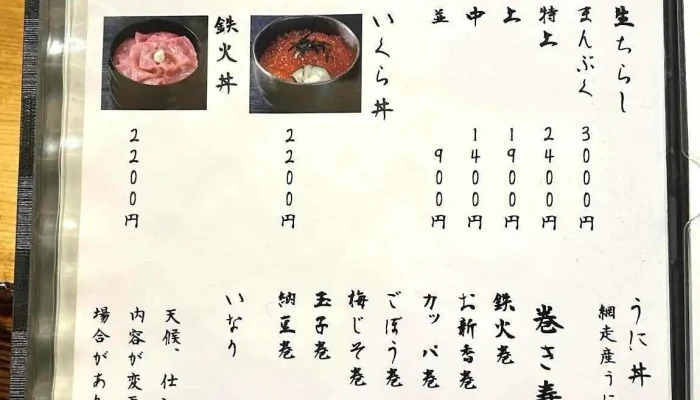 生ちらし
まんぷく 3000円
特上 2400円
上 1900円
中 1400円
並 900円
いくら丼
2200円
鉄火丼
2200円
うに丼
網走産うに
巻き寿
鉄火巻
お新香巻
カッパ巻
ごぼう巻
梅じそ巻
玉子巻
納豆巻
いなり
天候、仕
内容が変
場合があり